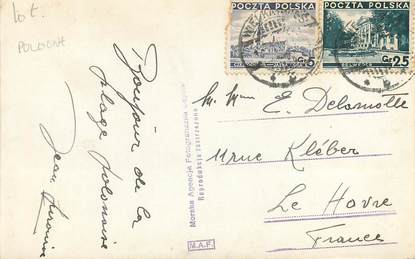 10 t.
POLOGNE
Bonjour de la
plage polonaise
Jean
Morska Agencja Fotograficzna
Reprodukcja zastrzeżona
M.A.F.
POCZTA POLSKA
Gr 5
POCZTA POLSKA
BELWEDER
Gr 25
E. Delamotte
11 rue Kléber
Le Havre
France